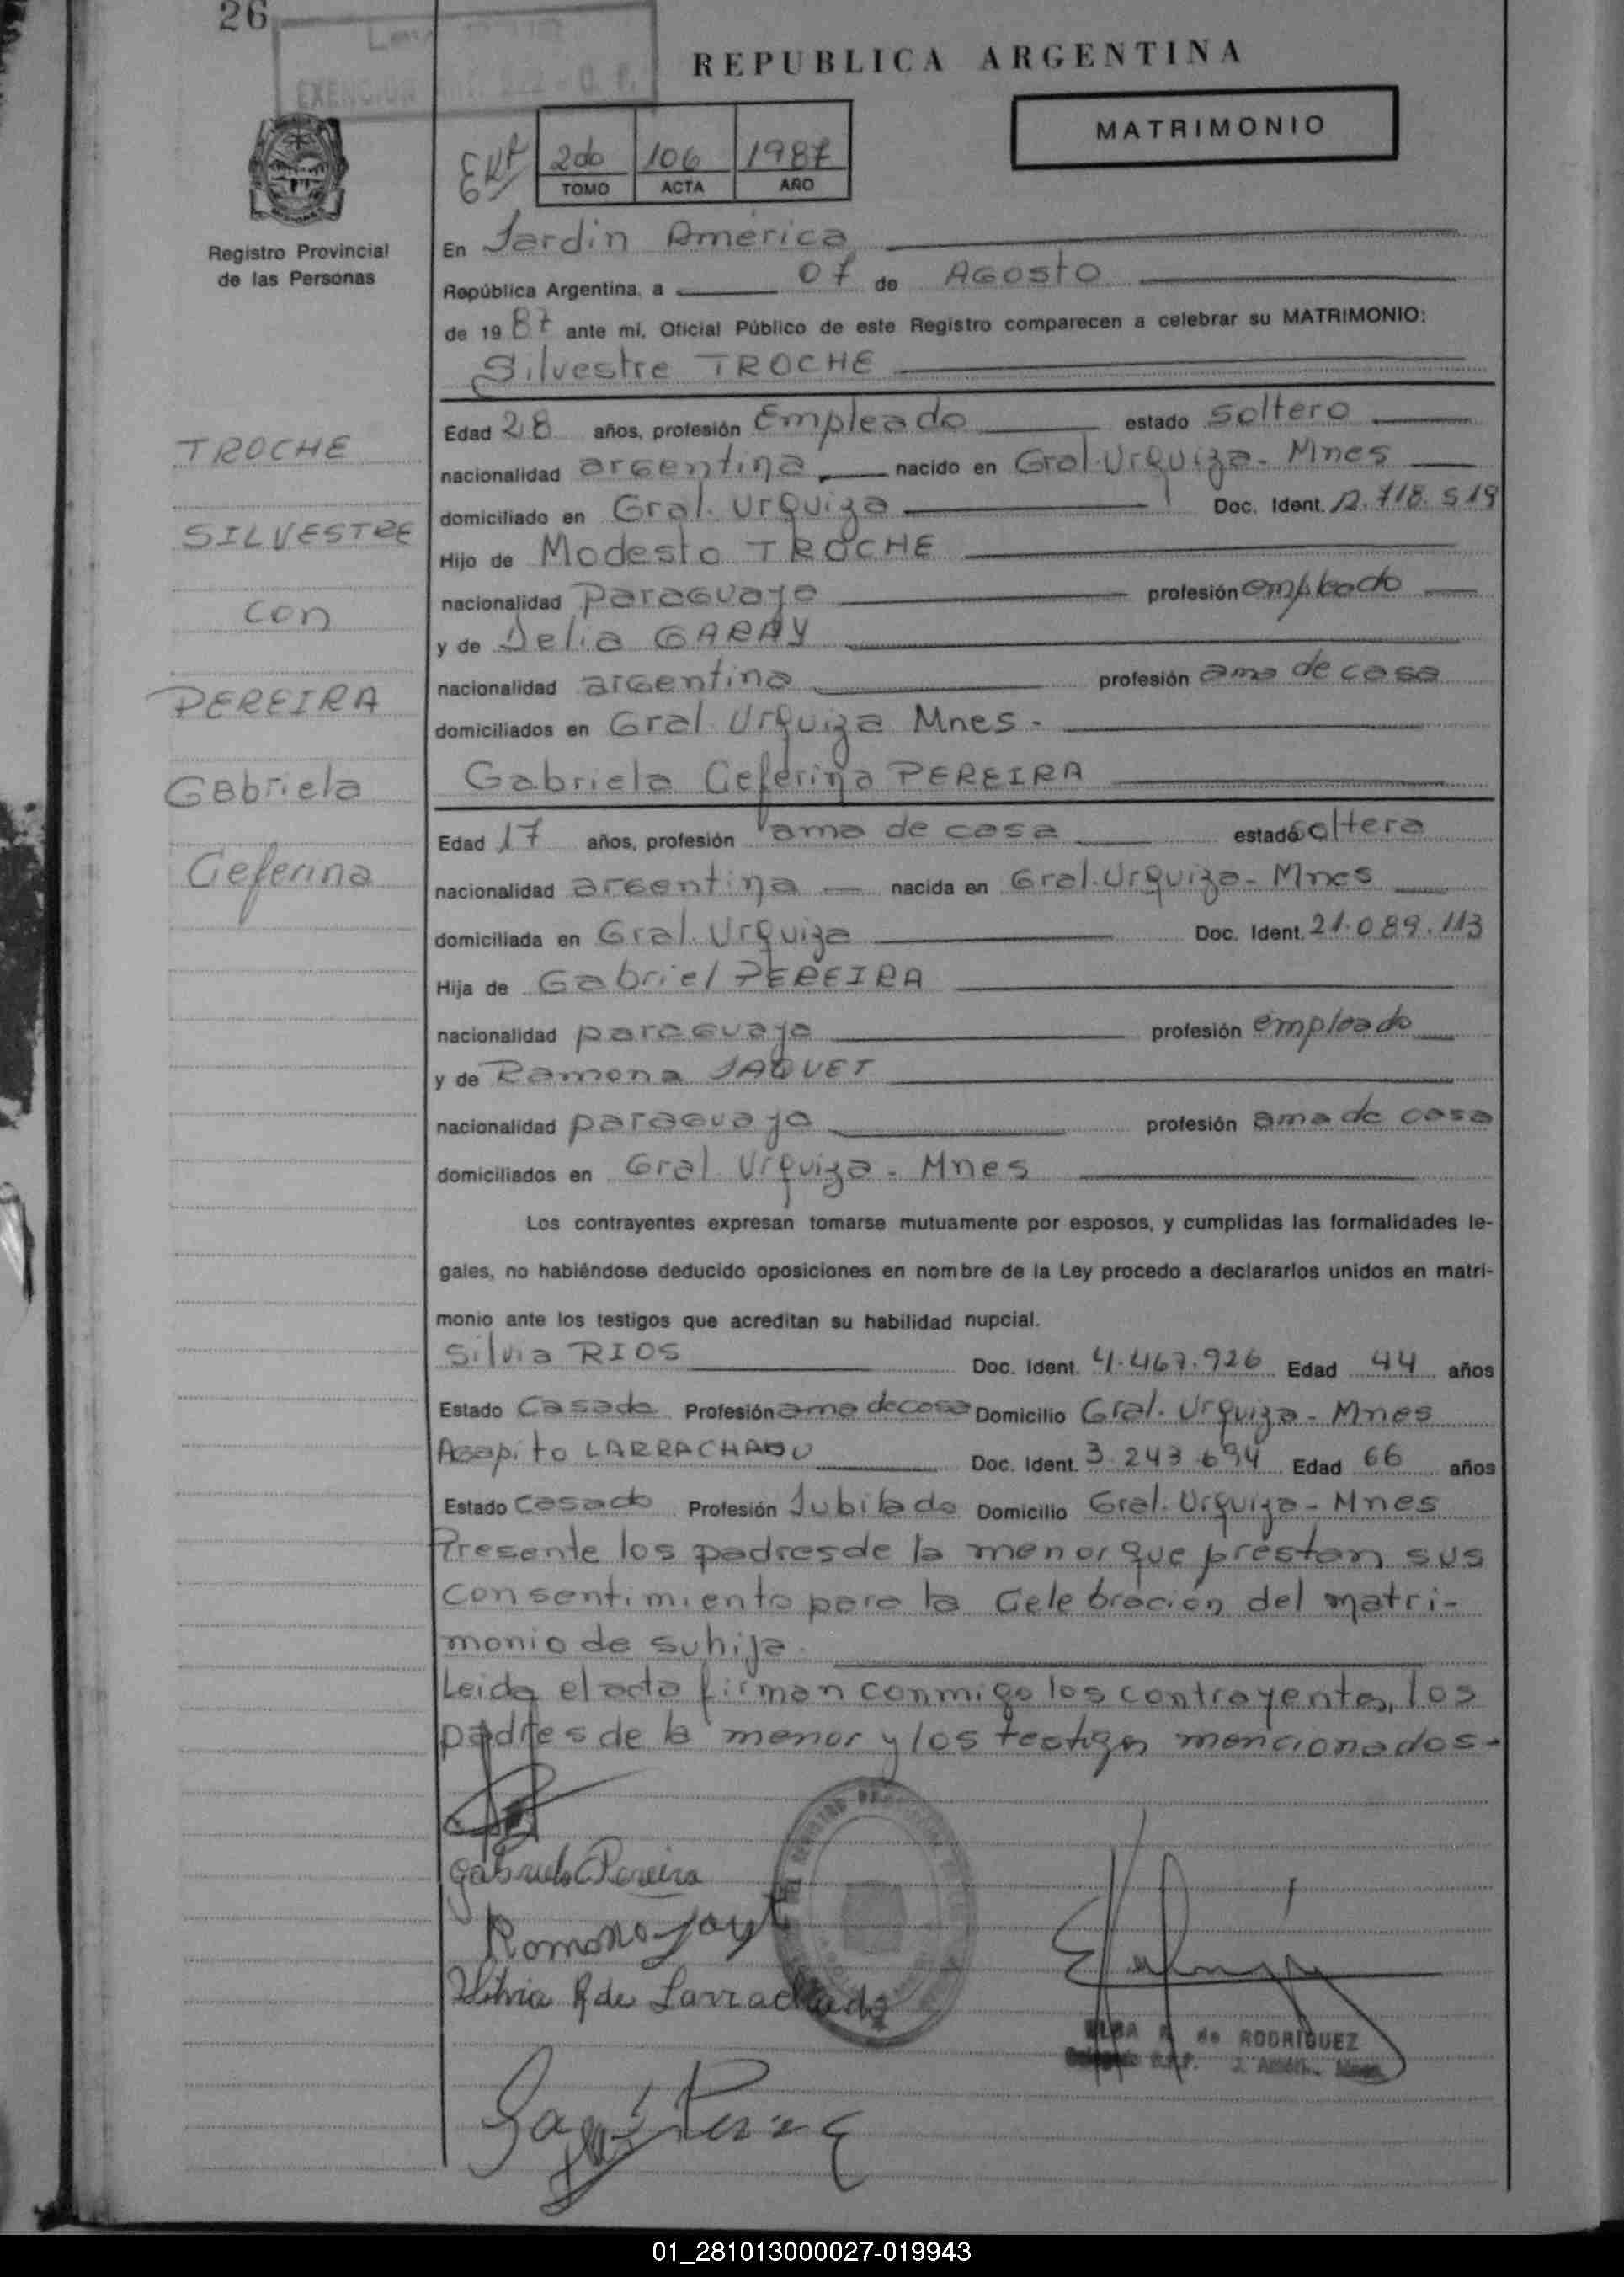 26
EXENCION
REPUBLICA ARGENTINA
MATRIMONIO
2do 106 1987
TOMO ACTA AÑO
Registro Provincial
de las Personas
En Jardin America
República Argentina, a 07 de Agosto
de 19 87 ante mí, Oficial Público de este Registro comparecen a celebrar su MATRIMONIO:
Silvestre TROCHE
Edad 28 años, profesión Empleado estado soltero
nacionalidad argentina nacido en Gral. Urquiza - Mnes
domiciliado en Gral. Urquiza Doc. Ident. 12.718.519
Hijo de Modesto TROCHE
nacionalidad paraguayo profesión empleado
y de Delia GARAY
nacionalidad argentina profesión ama de casa
domiciliados en Gral. Urquiza Mnes -
TROCHE
SILVESTRE
con
PEREIRA
Gabriela
Ceferina
Gabriela Ceferina PEREIRA
Edad 17 años, profesión ama de casa estado soltera
nacionalidad argentina nacida en Gral. Urquiza - Mnes
domiciliada en Gral. Urquiza Doc. Ident. 21.089.113
Hija de Gabriel PEREIRA
nacionalidad paraguayo profesión empleado
y de Ramona JAQUET
nacionalidad paraguaya profesión ama de casa
domiciliados en Gral Urquiza - Mnes
Los contrayentes expresan tomarse mutuamente por esposos, y cumplidas las formalidades le-
gales, no habiéndose deducido oposiciones en nombre de la Ley procedo a declararlos unidos en matri-
monio ante los testigos que acreditan su habilidad nupcial.
Silvia RIOS Doc. Ident. 4.467.926 Edad 44 años
Estado Casada Profesión ama de casa Domicilio Gral. Urquiza - Mnes
Agapito LARRACHADU Doc. Ident. 3.243.694 Edad 66 años
Estado Casado Profesión Jubilado Domicilio Gral. Urquiza - Mnes
Presente los padres de la menor que prestan sus
consentimiento para la Celebración del matri-
monio de su hija.
Leida el acta firman conmigo los contrayentes, los
padres de la menor y los testigos mencionados -
Gabriela Pereira
Ramona
Silvia R de
ELBA R. de RODRIGUEZ
01_281013000027-019943